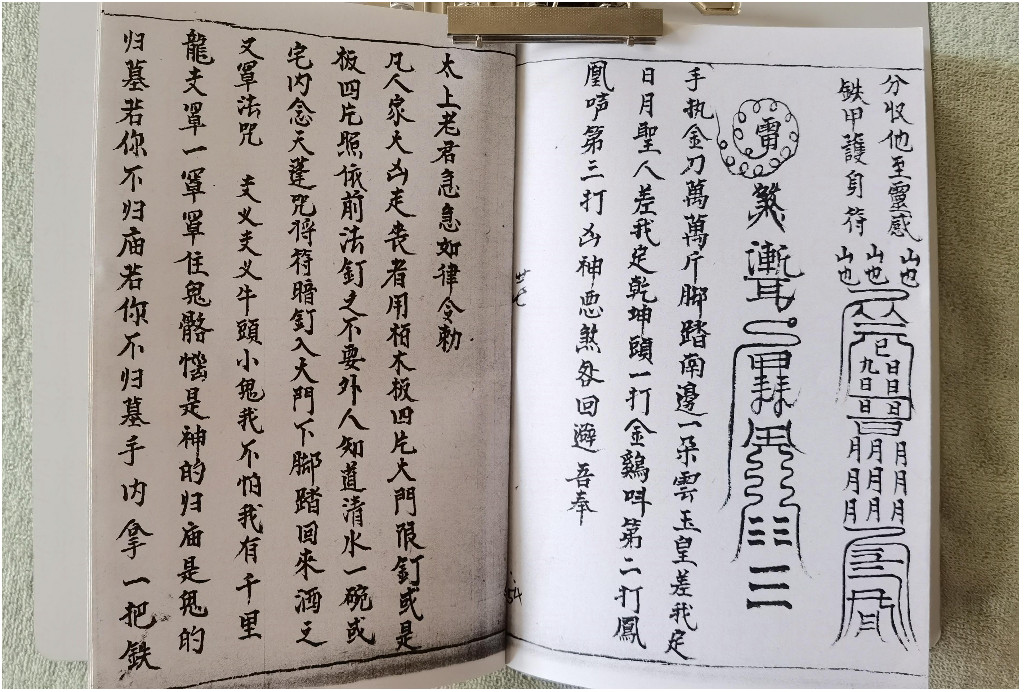 分收他至靈感
鉄甲護身符
山也 山也 山也
日日日
九日日
月月月
月月月
月月月
雷
煞
手执金刀萬萬斤脚踏南邊一朵雲玉皇差我定
日月聖人差我定乾坤頭一打金鷄叫第二打鳳
凰声第三打凶神恶煞各回避吾奉
太上老君急急如律令勅
凡人家大凶走丧者用柏木板四片大門限釘或是
板四片照依前法釘之不要外人知道清水一碗或
宅内念天蓬咒将符暗釘入大門下脚踏回來洒之
又罩法咒 叉义叉义牛頭小鬼我不怕我有千里
龍叉罩一罩罩住鬼骼惱是神的归庙是鬼的
归墓若你不归庙若你不归墓手内拿一把鉄